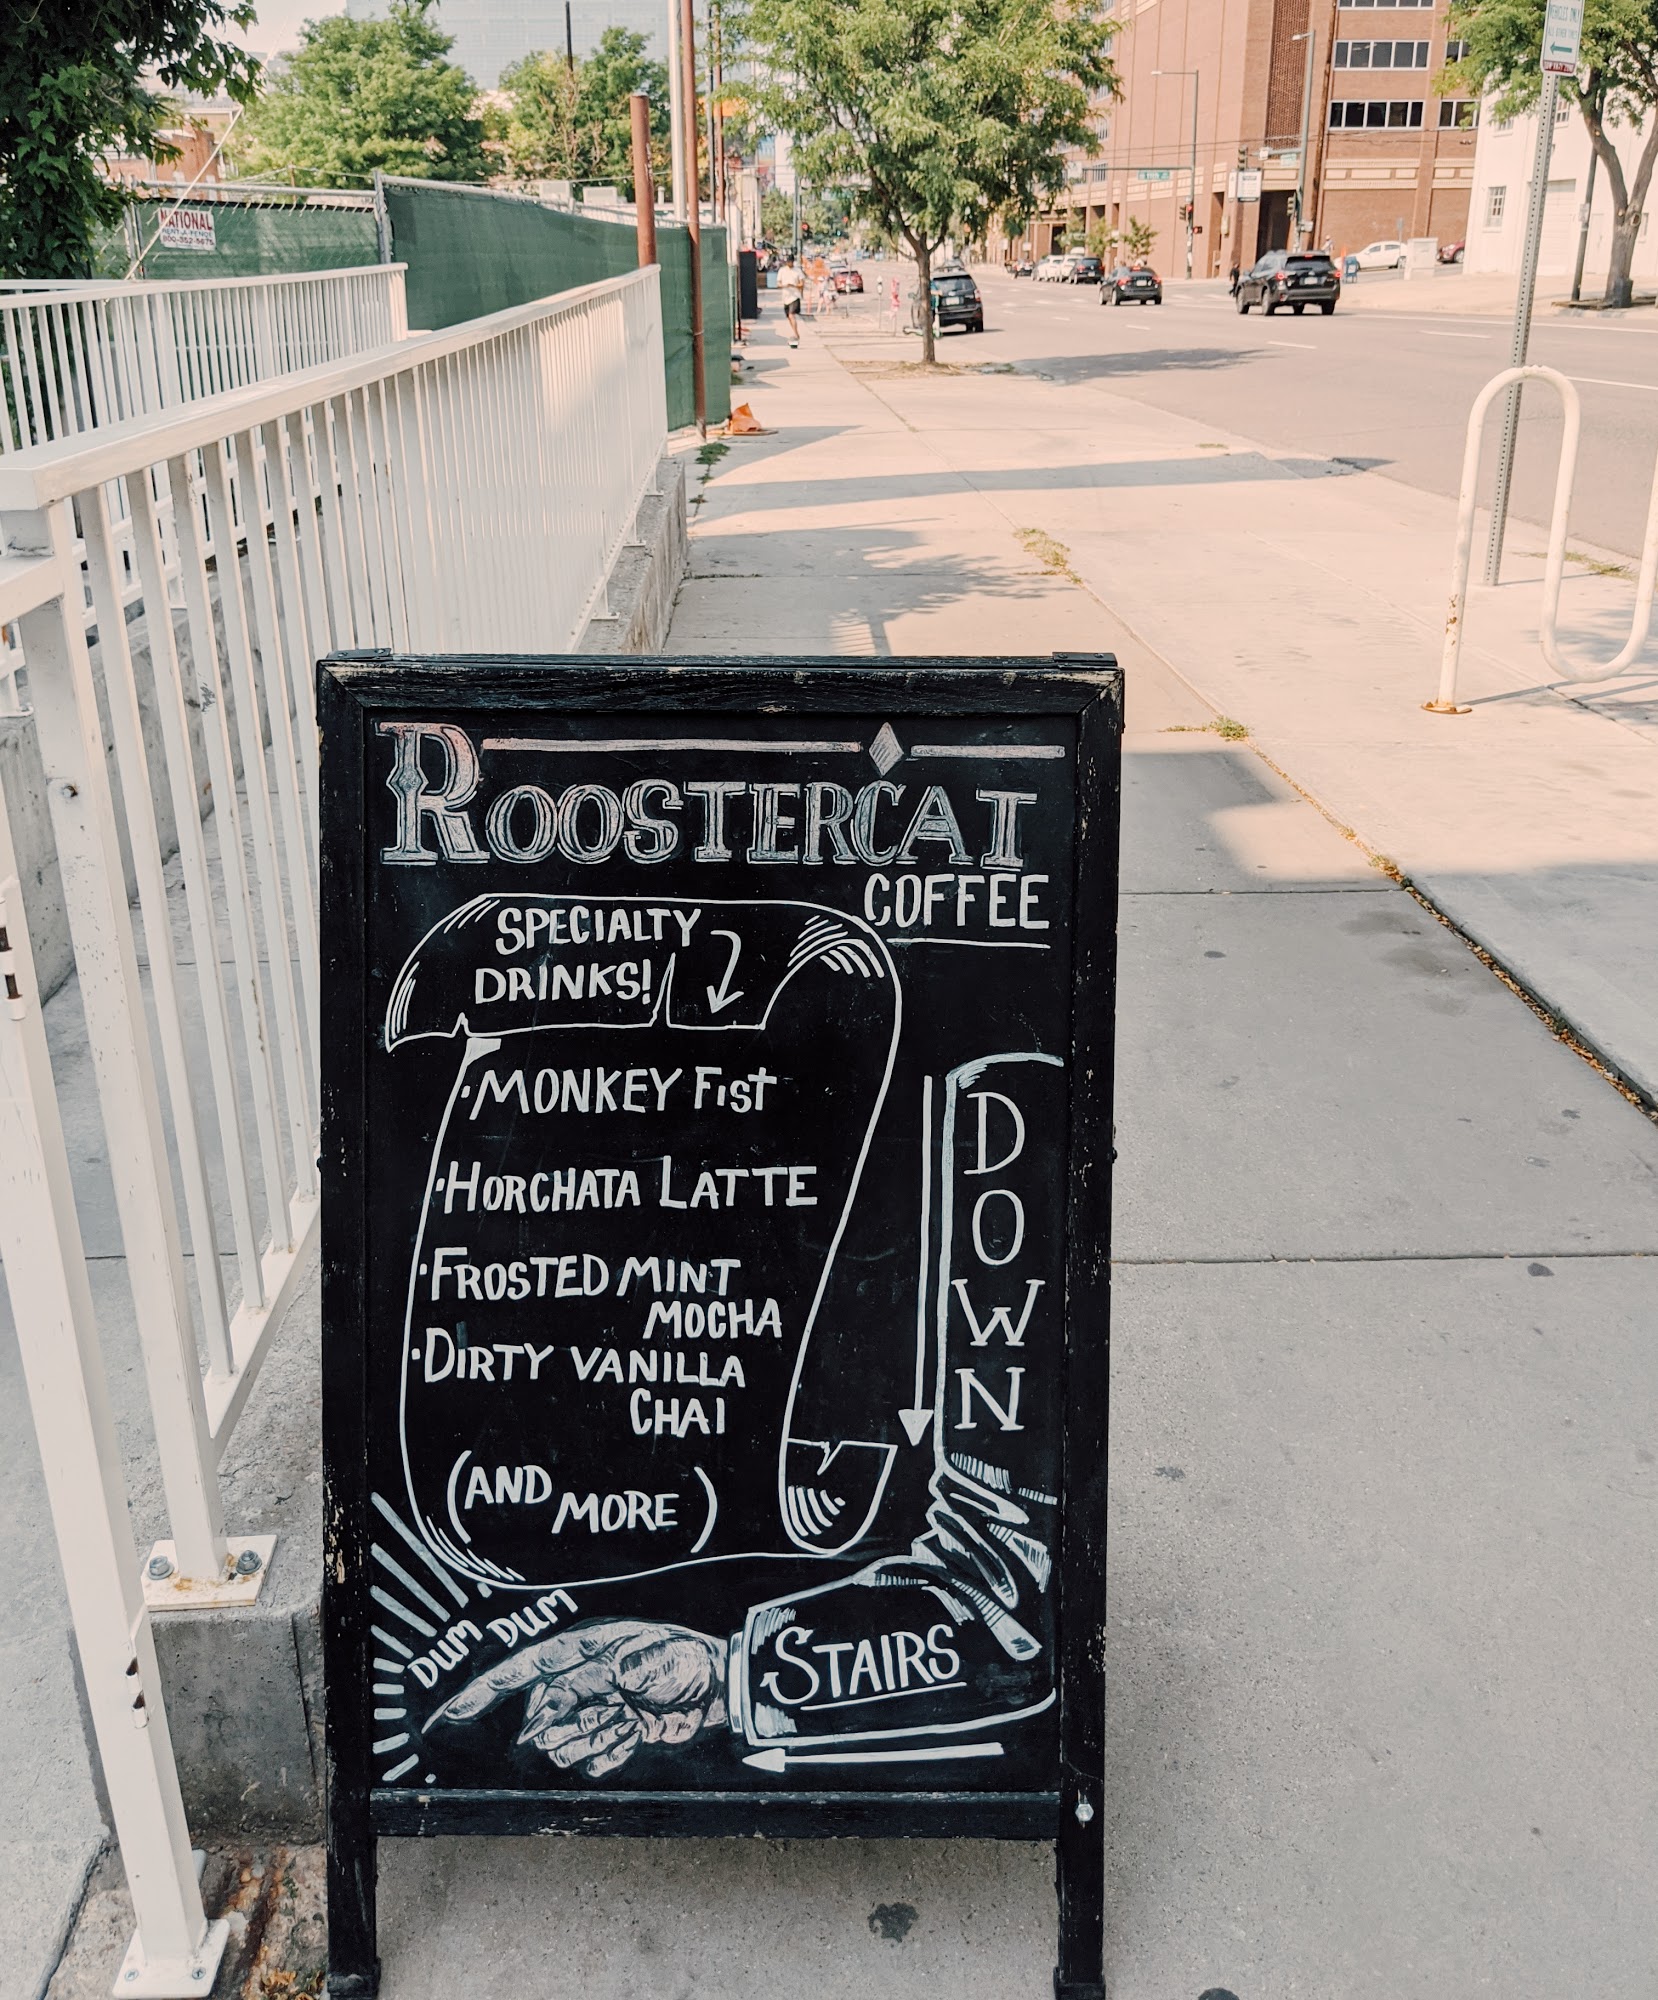 NATIONAL
RENT-A-FENCE
800-352-5675
ROOSTERCAT
COFFEE
SPECIALTY
DRINKS!
·MONKEY FIST
·HORCHATA LATTE
·FROSTED MINT
MOCHA
·DIRTY VANILLA
CHAI
(AND MORE)
DOWN
STAIRS
DUM DUM